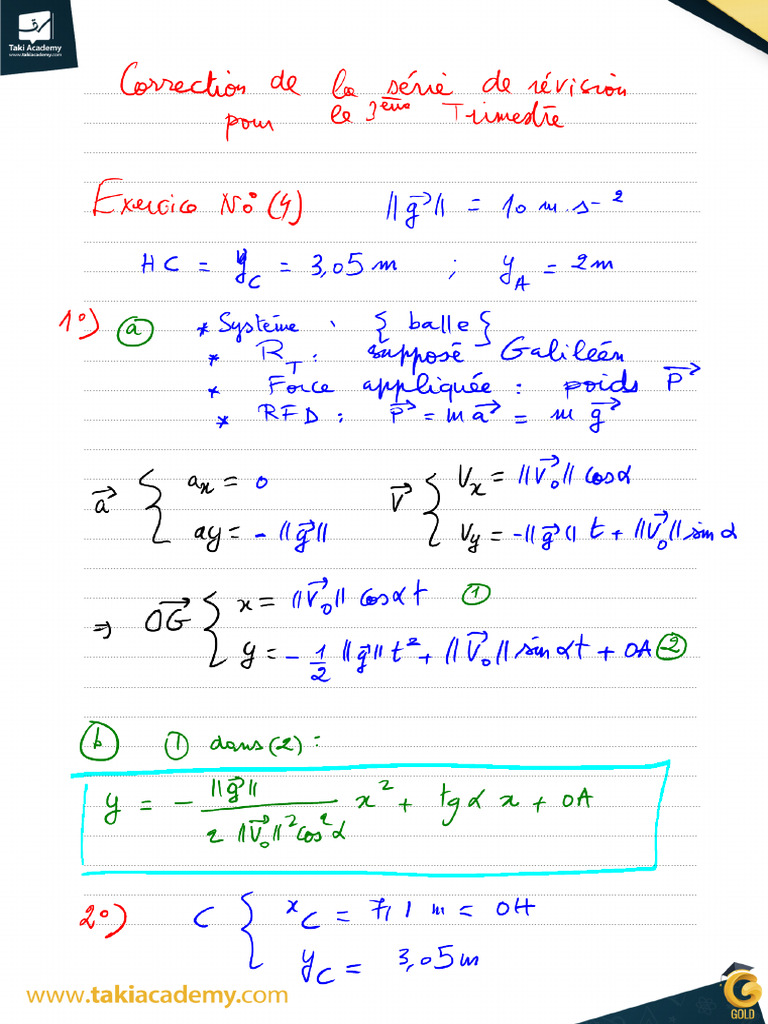 Taki Academy
www.takiacademy.com
Correction de la série de révision
pour le 3ème Trimestre
Exercice No (4) ||g⃗|| = 10 m.s-²
HC = y_C = 3,05 m ; y_A = 2m
1°) (a) * Système : { balle }
* R_T : supposé Galiléen
* Force appliquée : poids P⃗
* RFD : P⃗ = m a⃗ = m g⃗
a⃗ { a_x = 0 V⃗ { V_x = ||V⃗₀|| cosα
ay = - ||g⃗|| V_y = -||g⃗|| t + ||V⃗₀|| sin α
⇒ OG⃗ { x = ||V⃗₀|| cosα t (1)
y = - 1/2 ||g⃗|| t² + ||V⃗₀|| sin αt + OA (2)
(b) (1) dans (2) :
y = - ||g⃗|| / 2 ||V⃗₀||² cos²α x² + tgα x + OA
2°) C { x_C = 7,1 m = OH
y_C = 3,05 m
www.takiacademy.com
G
GOLD